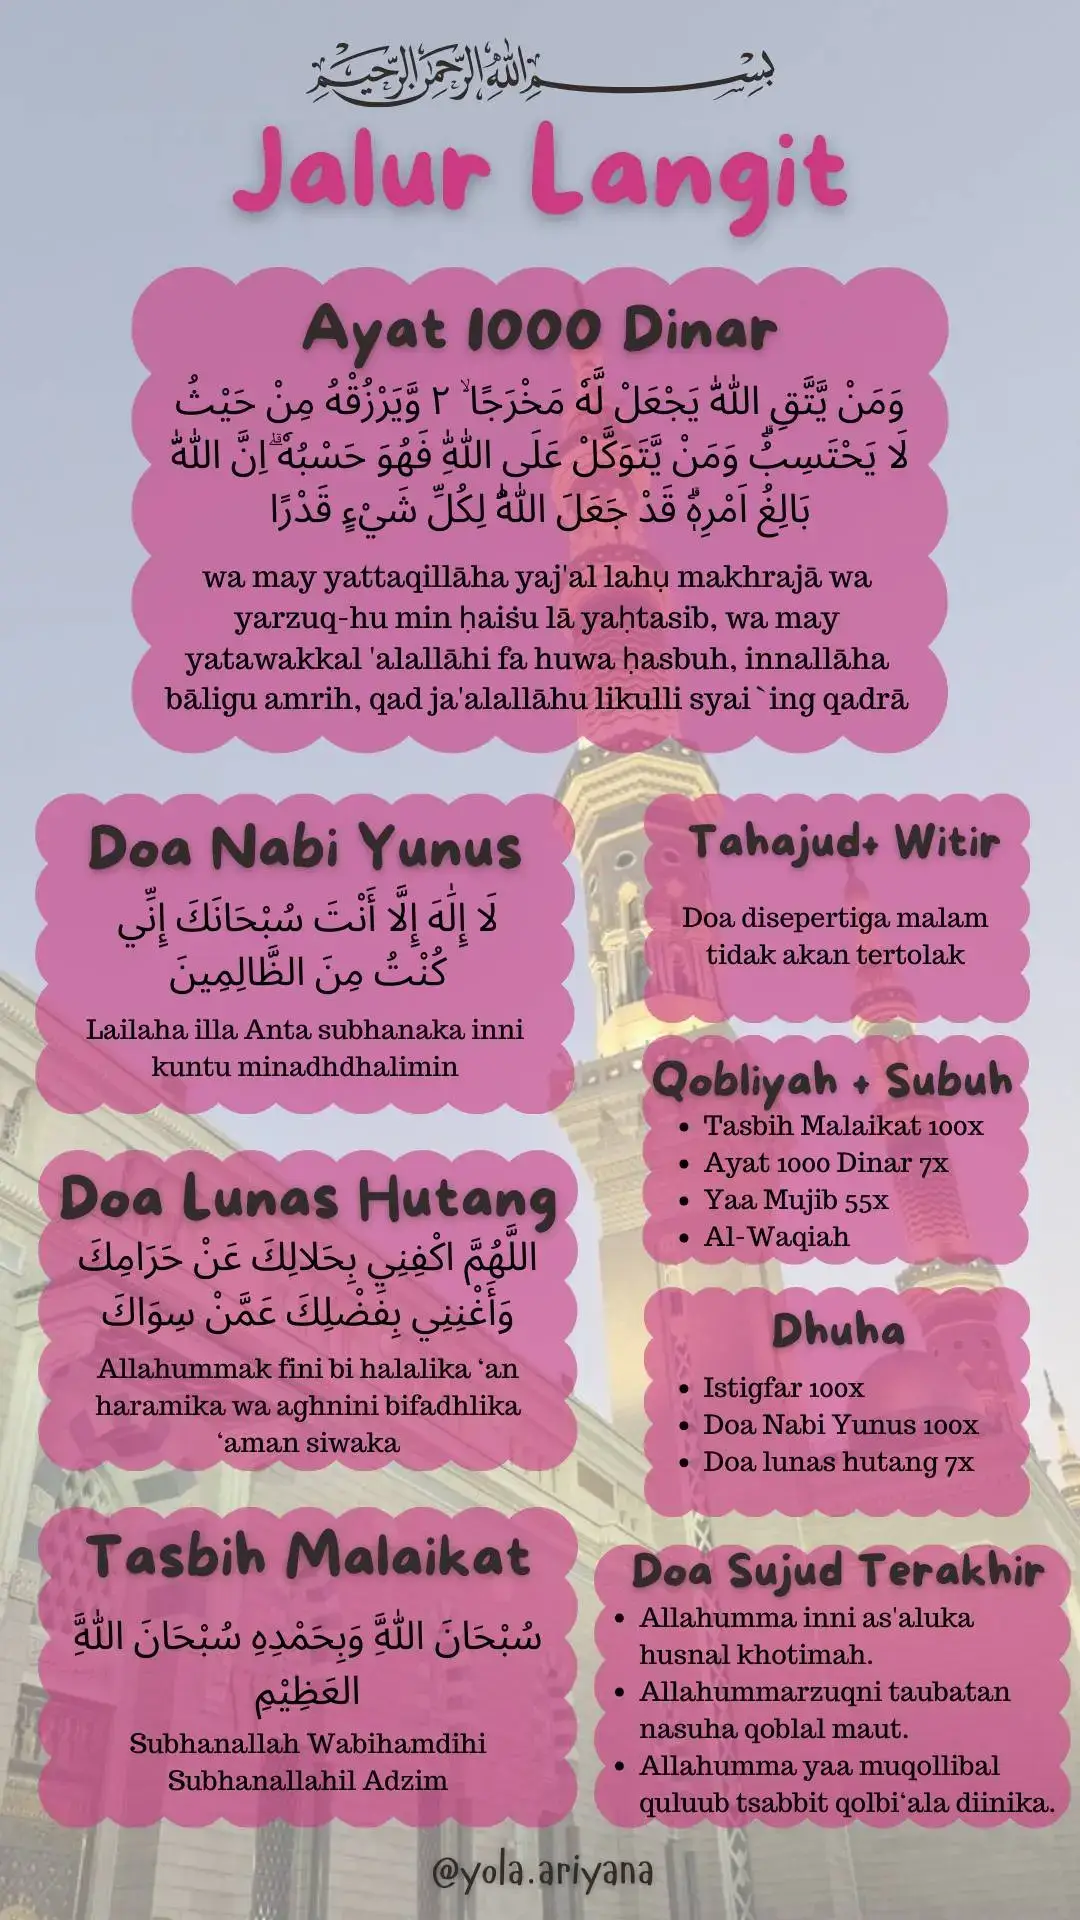 بِسْمِ اللهِ الرَّحْمٰنِ الرَّحِيْمِ
Jalur Langit
Ayat 1000 Dinar
وَمَنْ يَّتَّقِ اللّٰهَ يَجْعَلْ لَّهٗ مَخْرَجًاۙ ٢ وَّيَرْزُقْهُ مِنْ حَيْثُ
لَا يَحْتَسِبُۗ وَمَنْ يَّتَوَكَّلْ عَلَى اللّٰهِ فَهُوَ حَسْبُهٗۗ اِنَّ اللّٰهَ
بَالِغُ اَمْرِهٖۗ قَدْ جَعَلَ اللّٰهُ لِكُلِّ شَيْءٍ قَدْرًا
wa may yattaqillāha yaj'al lahụ makhrajā wa
yarzuq-hu min ḥaiṡu lā yaḥtasib, wa may
yatawakkal 'alallāhi fa huwa ḥasbuh, innallāha
bāligu amrih, qad ja'alallāhu likulli syai`ing qadrā
Doa Nabi Yunus
لَا إِلَٰهَ إِلَّا أَنْتَ سُبْحَانَكَ إِنِّي
كُنْتُ مِنَ الظَّالِمِينَ
Lailaha illa Anta subhanaka inni
kuntu minadhdhalimin
Doa Lunas Hutang
اللَّهُمَّ اكْفِنِي بِحَلالِكَ عَنْ حَرَامِكَ
وَأَغْنِنِي بِفَضْلِكَ عَمَّنْ سِوَاكَ
Allahummak fini bi halalika ‘an
haramika wa aghnini bifadhlika
‘aman siwaka
Tasbih Malaikat
سُبْحَانَ اللهَِّ وَبِحَمْدِهِ سُبْحَانَ اللهَِّ
العَظِيْمِ
Subhanallah Wabihamdihi
Subhanallahil Adzim
Tahajud+ Witir
Doa disepertiga malam
tidak akan tertolak
Qobliyah + Subuh
• Tasbih Malaikat 100x
• Ayat 1000 Dinar 7x
• Yaa Mujib 55x
• Al-Waqiah
Dhuha
• Istigfar 100x
• Doa Nabi Yunus 100x
• Doa lunas hutang 7x
Doa Sujud Terakhir
• Allahumma inni as'aluka
husnal khotimah.
• Allahummarzuqni taubatan
nasuha qoblal maut.
• Allahumma yaa muqollibal
quluub tsabbit qolbi‘ala diinika.
@yola.ariyana